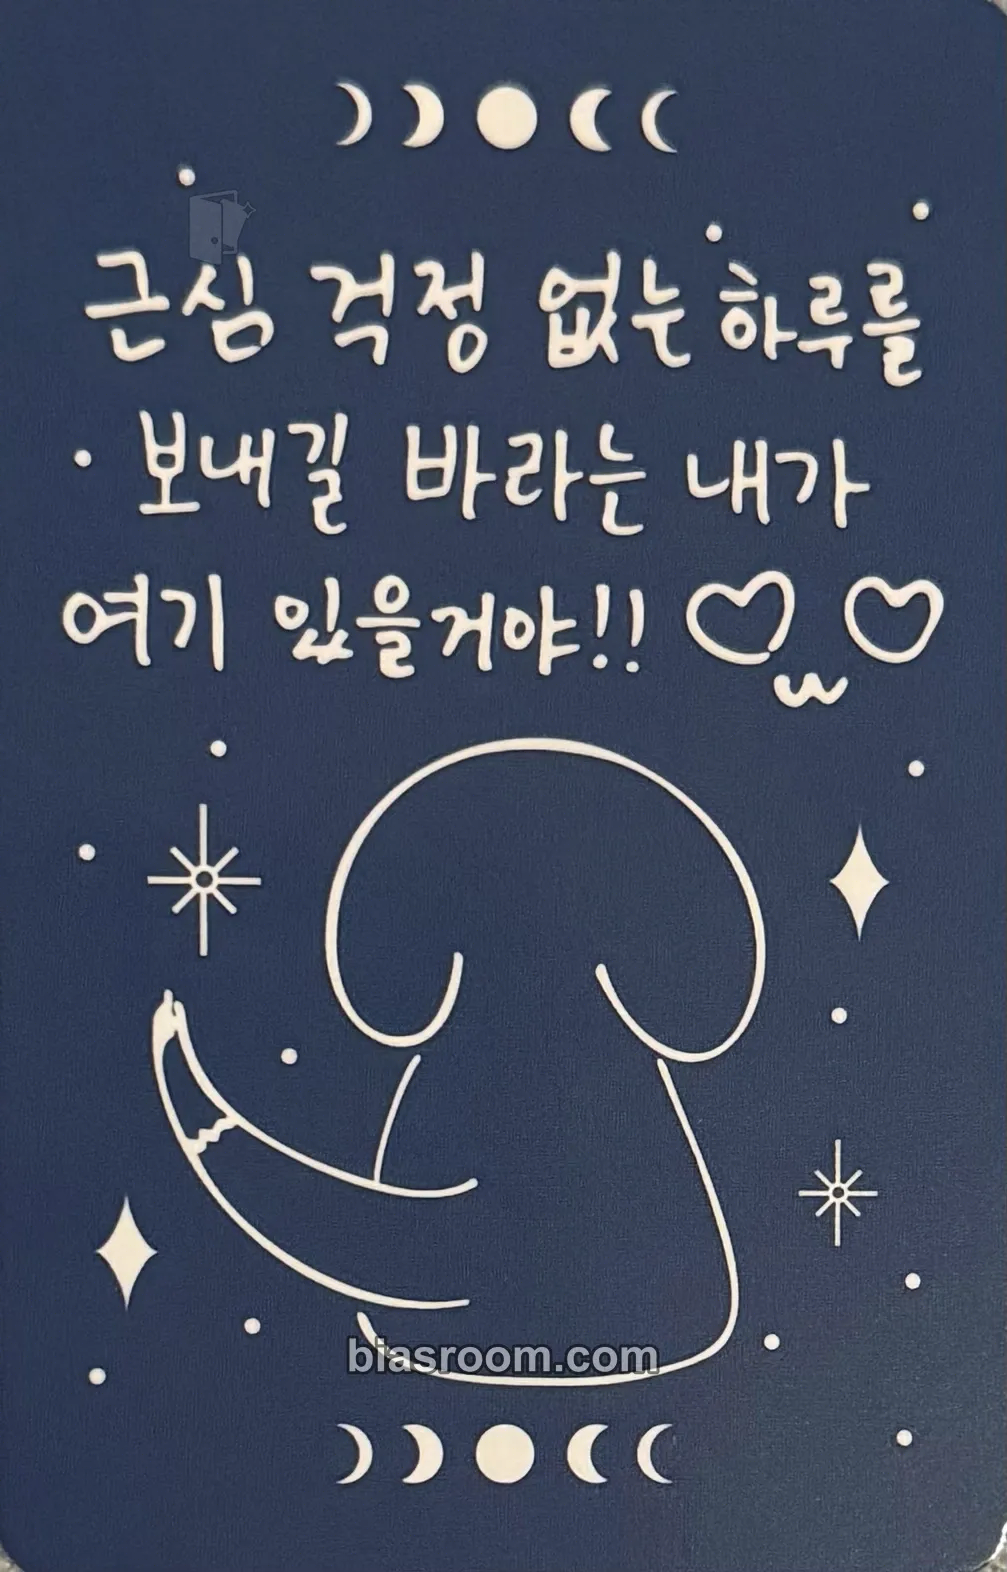 근심 걱정 없는 하루를
보내길 바라는 내가
여기 있을거야!! ♡ω♡
biasroom.com